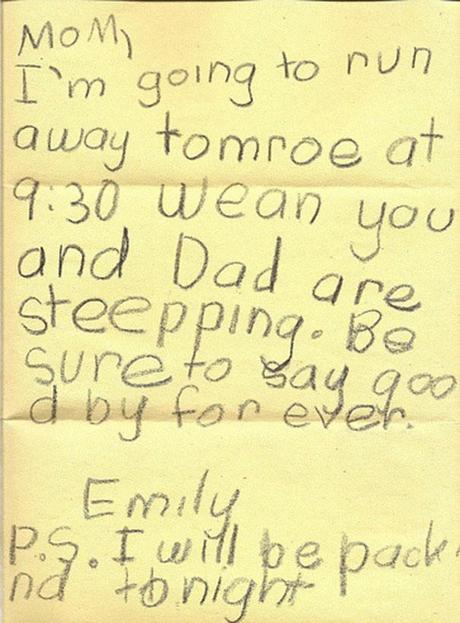 MoM,
I'm going to run
away tomroe at
9:30 wean you
and Dad are
steepping. Be
sure to say goo
d by for ever.
Emily
P.S. I will be pack
nd tonight